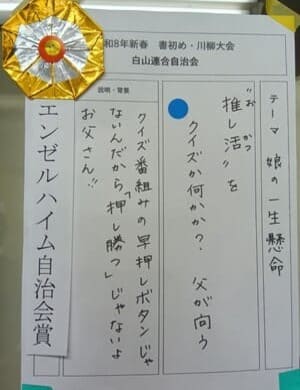 和8年新春 書初め・川柳大会
白山連合自治会
テーマ 娘の一生懸命
おかつ
"推し活"を
クイズか何かか? 父が向う
説明・背景
クイズ番組みの早押しボタンじゃ
ないんだから「押し勝つ」じゃないよ
お父さん!!
エンゼルハイム自治会賞